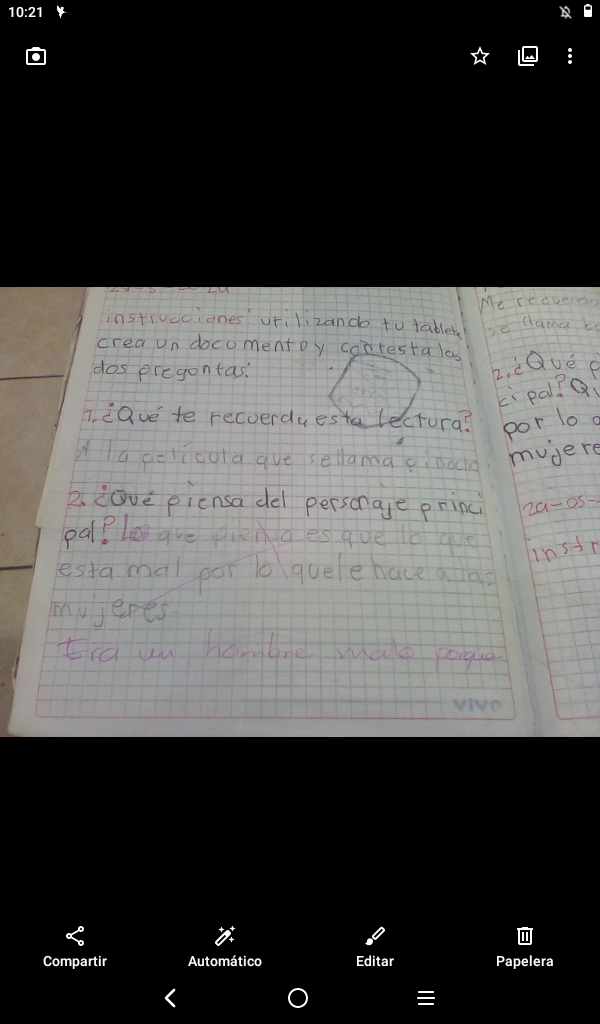 10:21
instrucciones: utilizando tu tablet
crea un documento y contesta las
dos preguntas:
1. ¿Qué te recuerdu esta lectura?
A la película que se llama
2. ¿Qué piensa del personaje princi
pal? Lo que piensa es que lo que
esta mal por lo que le hace a las
mujeres.
Era un hombre malo porque
vivo
Me recuerdo
se llama
2. ¿Qué p
cipal? Q
por lo
mujere
2a-05-
instr
Compartir
Automático
Editar
Papelera